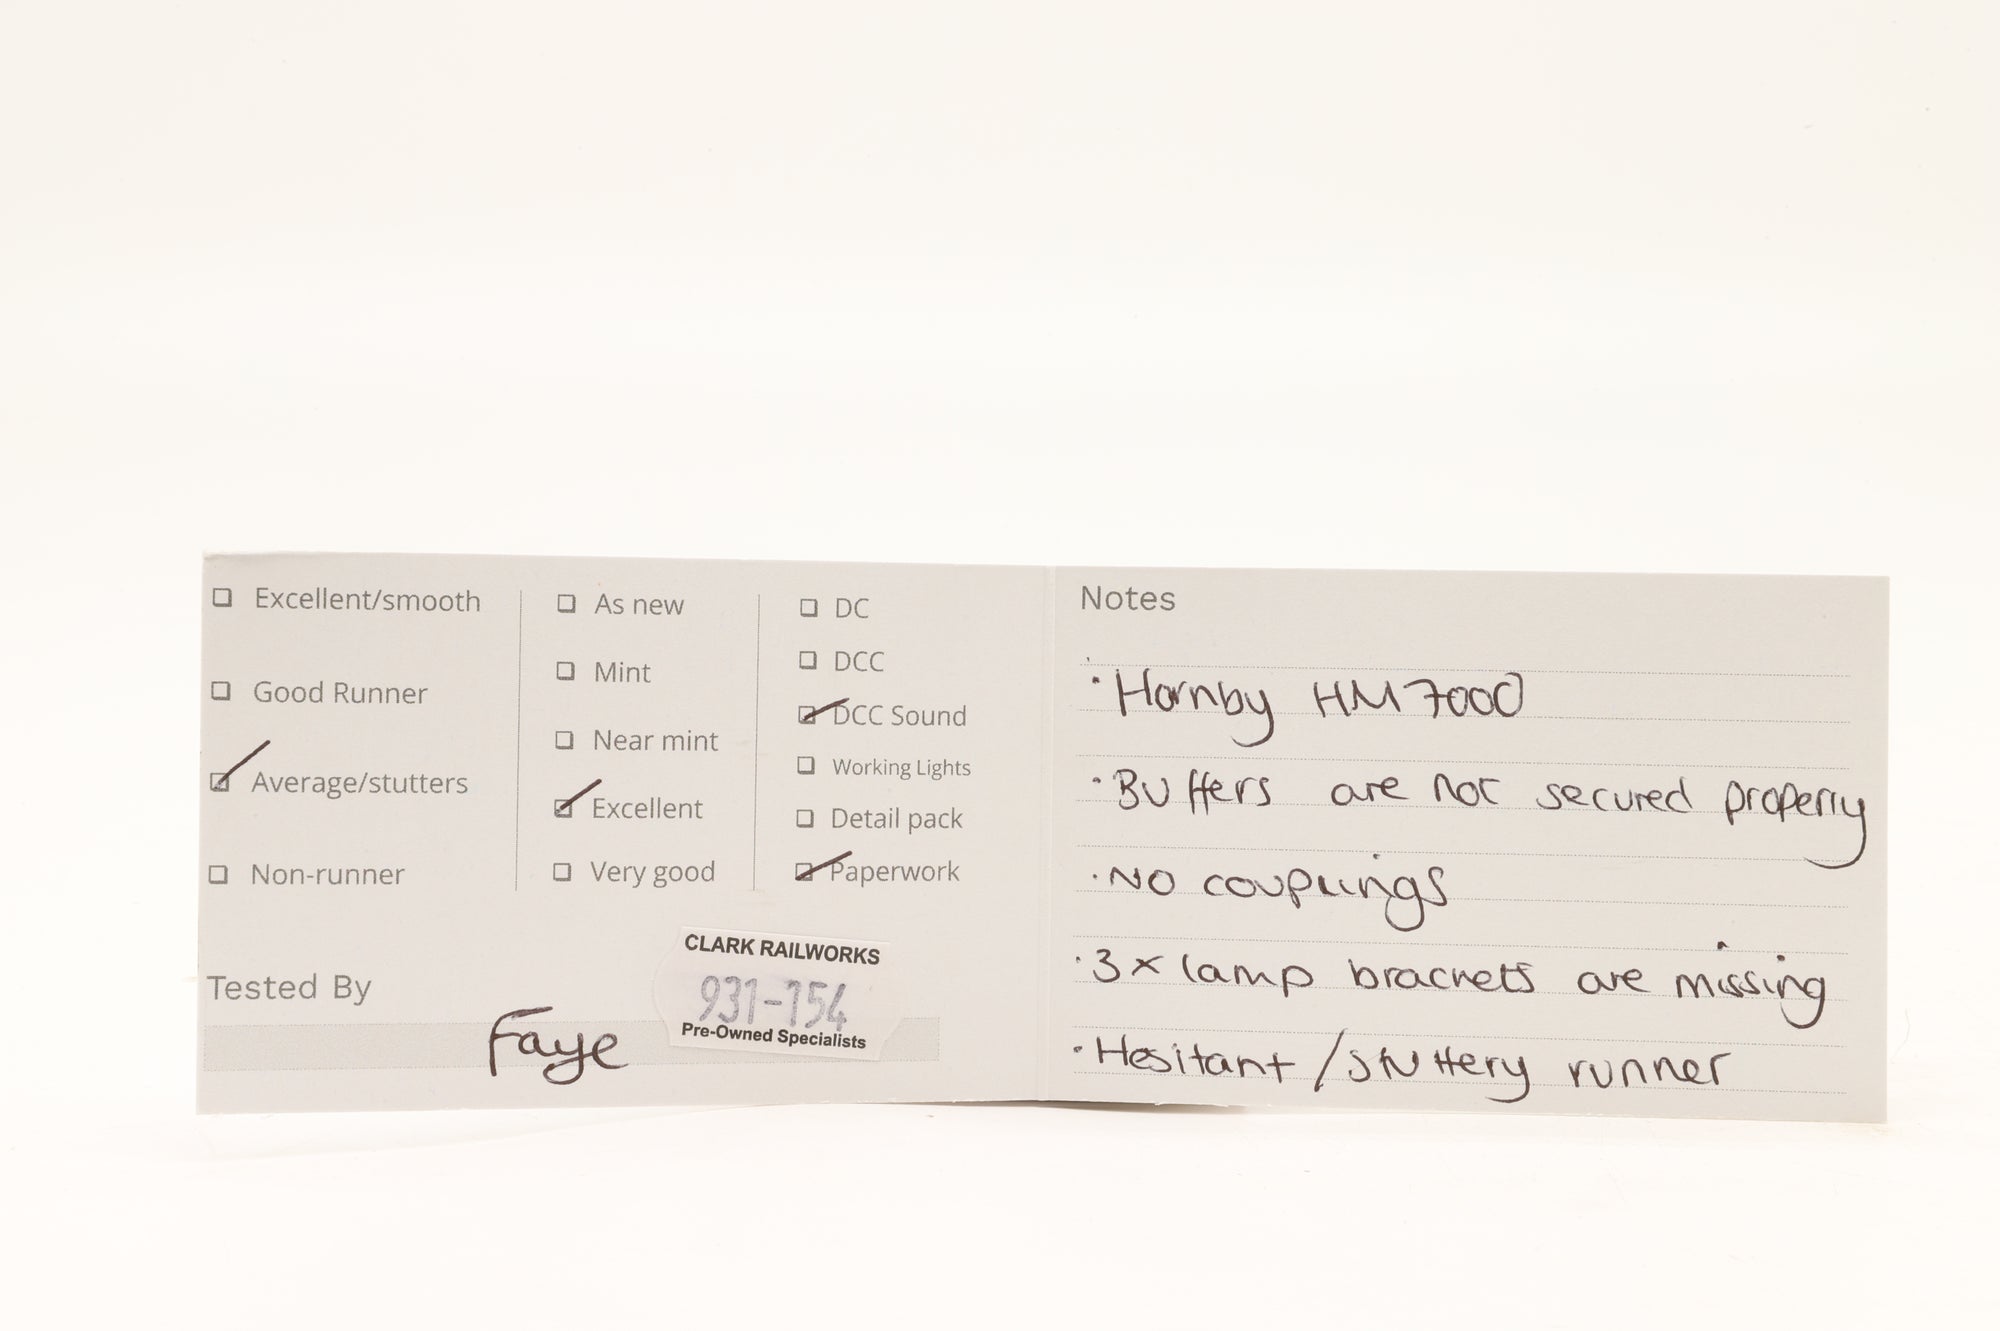 Excellent/smooth
Good Runner
Average/stutters
Non-runner
As new
Mint
Near mint
Excellent
Very good
DC
DCC
DCC Sound
Working Lights
Detail pack
Paperwork
Tested By
Faye
CLARK RAILWORKS
931-754
Pre-Owned Specialists
Notes
· Hornby HM7000
· Buffers are not secured properly
· No couplings
· 3x lamp brackets are missing
· Hesitant/stuttery runner